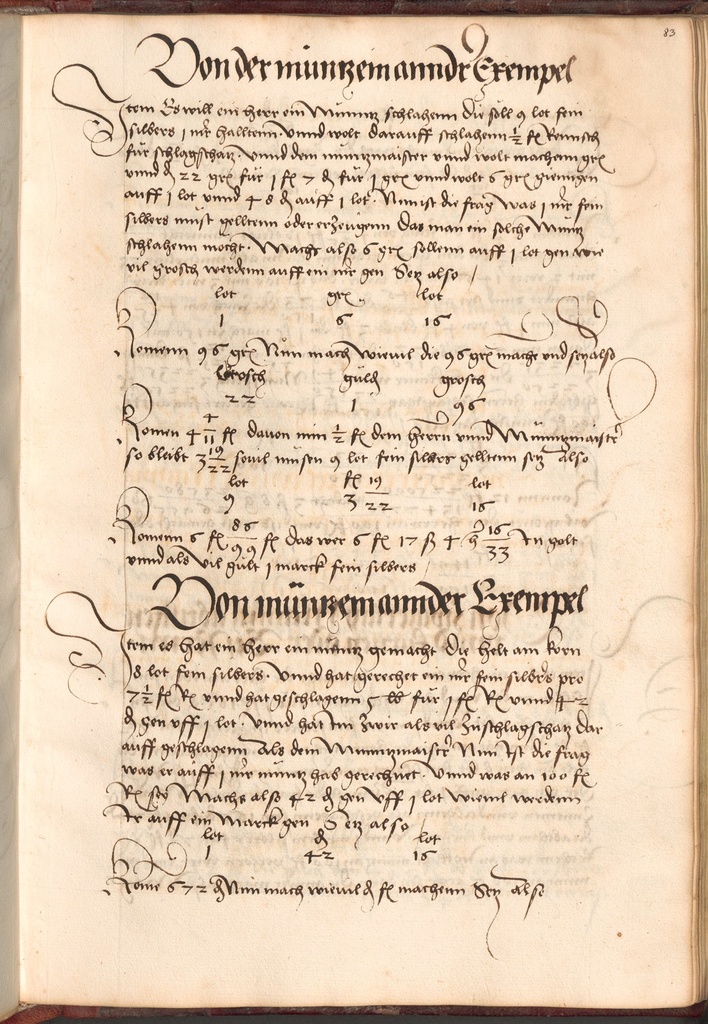 83
Von der müntz ein annder Exempel
Item Es will ein herr ein Münntz schlahenn die soll 9 lot fein
silbers 1 mr halltenn. vnnd wolt darauff schlahenn ½ fl Reinisch
für schlagschatz. vnnd dem müntzmaister vnnd wolt machenn grx
vnnd ₰ 22 grx für 1 fl 7 ₰ für 1 grx vnnd wolt 6 grx giengen
auff 1 lot vnnd 48 ₰ auff 1 lot. Nun ist die frag was 1 mr fein
silbers müst gelltenn oder erzeugenn das man ein solche Müntz
schlahenn möcht. Machs also 6 grx sollenn auff 1 lot gen wie
vil grosch werdenn auff ein mr gen Setz also /
lot grx lot
1 6 16
Komenn 96 grx Nun mach wieuil die 96 grx macht vnd setz also
Grosch guld grosch
22 1 96
Komen 4 4/11 fl dauon nim ½ fl dem herrn vnnd Münntzmaister
so bleibt 3 19/22 souil müsen 9 lot fein silber gelltenn setz also
lot fl lot
9 3 19/22 16
Komenn 6 fl 86/99 fl das wer 6 fl 17 ß 4 h 16/33 In golt
vnnd als vil gült 1 marck fein silbers /
Von müntz ein annder Exempel
Item es hat ein herr ein müntz gemacht die helt am korn
8 lot fein silbers. vnnd hat gerechet ein mr fein silbers pro
7 ½ fl Rx vnnd hat geschlagenn 5 lb für 1 fl Rx vnnd 42
₰ gen vff 1 lot. vnnd hat Im zwir als vil zu schlagschatz dar
auff geschlagenn als dem Münntzmaister Nun ist die frag
was er auff 1 mr müntz hab gerechnet. vnnd was an 100 fl
Rx Machs also 42 ₰ gen vff 1 lot wieuil werdenn
Ir auff ein Marck gen Setz also /
lot ₰ lot
1 42 16
Kome 672 ₰ Nun mach wieuil ₰ fl machenn Setz also